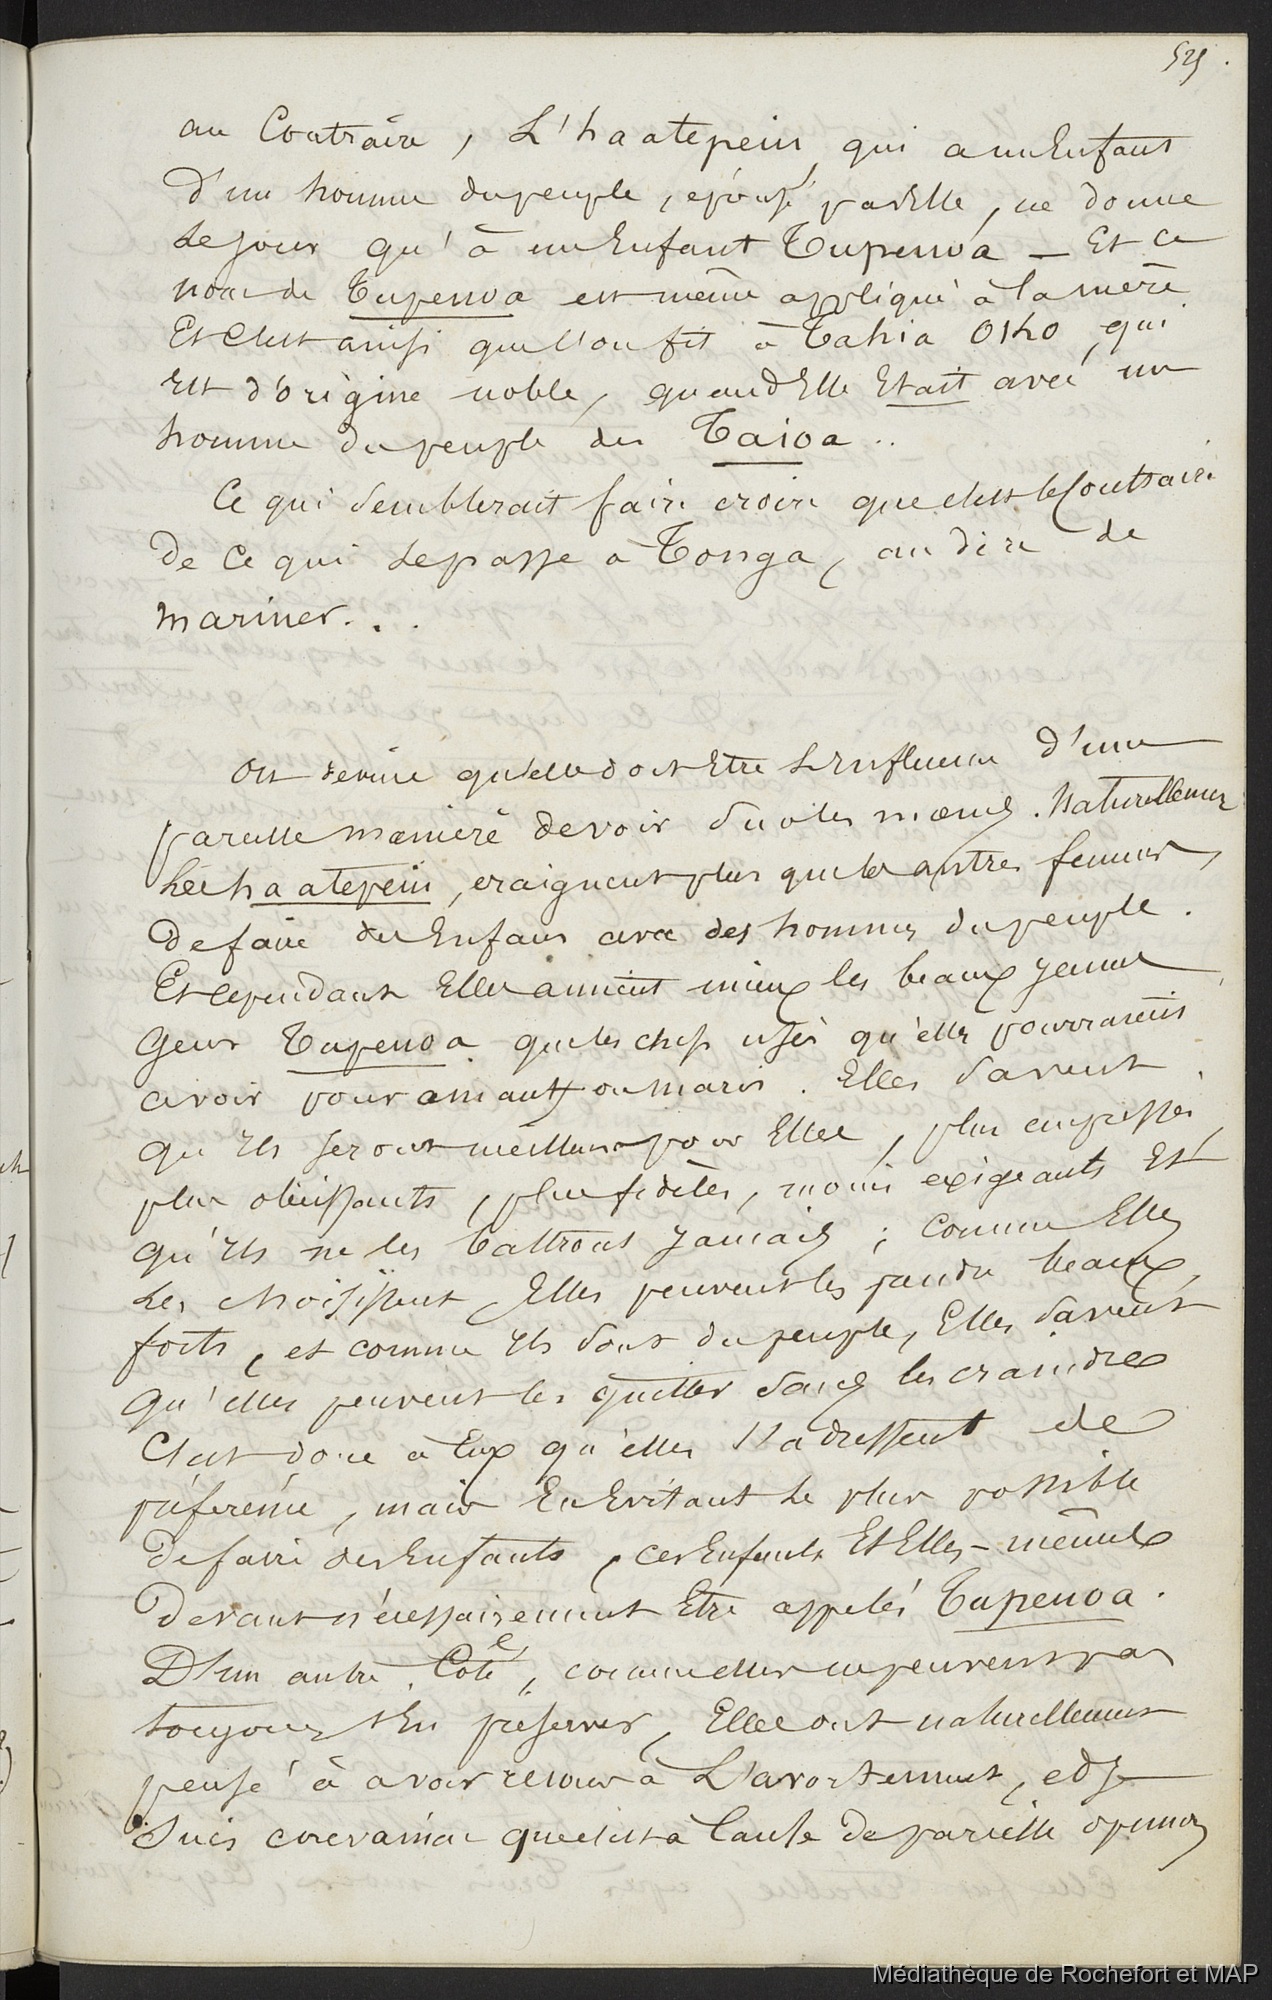 525.
au Contraire, L'haatepeiu qui a un Enfant
d'un homme du peuple, épousé par Elle, ne donne
le jour qu'à un Enfant Tupenoa – Et ce
nom de Tupenoa est même appliqué à la mère
Et C'est ainsi que l'on fit à Tahia Oho, qui
Est d'origine noble, quand Elle Etait avec un
homme du peuple des Taioa..
Ce qui semblerait faire croire que c'est le Contraire
de Ce qui se passe à Tonga, au dire de
mariner...
On devine quelle doit Etre L'Influence d'une
pareille manière de voir Sur les mœurs. Naturellement
Les haatepeiu, craignent plus que les autres femmes,
de faire des Enfans avec des hommes du peuple.
Et cependant Elles aiment mieux les beaux jeunes
Gens Tupenoa que les chefs usés qu'elles pourraient
avoir pour amants ou maris. Elles Savent
qu'Ils seront meilleurs pour Elles, plus empressés,
plus obéissants, plus fidèles, moins exigeants Et
qu'Ils ne les battront jamais ; comme Elles
Les choisissent, Elles peuvent les prendre beaux,
forts, et comme Ils Sont du peuple, Elles Savent
qu'elles peuvent les quitter Sans les craindre
C'est donc à Eux qu'elles s'adressent de
préférence, mais En Evitant le plus possible
de faire des Enfants, ces Enfants Et Elles-mêmes
devant nécessairement Etre appelés Tupenoa.
D'un autre Côté, comme elles ne peuvent pas
toujours s'En préserver, Elles ont naturellement
pensé à avoir recours à L'avortement, et Je
Suis convaincu que c'est à Cause de pareille opinion
Médiathèque de Rochefort et MAP